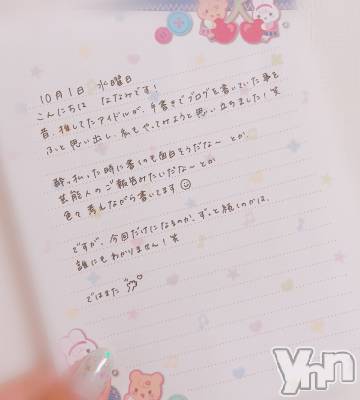 10月1日 水曜日
こんにちは ななみです!
昔、推してたアイドルが、手書きでブログを書いていた事を
ふっと思い出し、私もやってみようと思い立ちました!笑
酔っ払った時に書くのも面白そうだな〜とか、
芸能人のご報告みたいだな〜とか
色々考えながら書いてます☺
ですが、今回だけになるのか、ずっと続くのかは、
誰にもわかりません!笑
ではまた